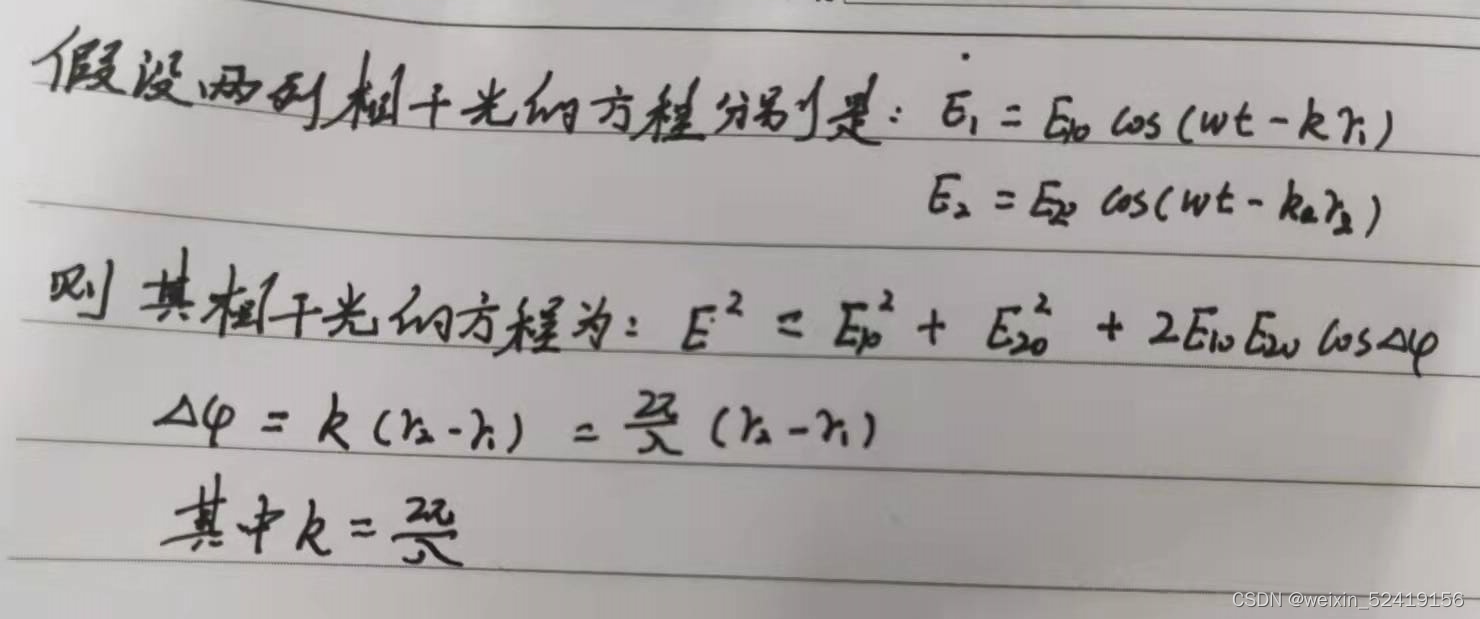 假设两列相干光的方程分别是: E₁ = E₁₀ cos(wt - kr₁)
E₂ = E₂₀ cos(wt - kr₂)
则其相干光的方程为: E² = E₁₀² + E₂₀² + 2E₁₀E₂₀ cosΔφ
Δφ = k(r₂-r₁) = 2π/λ (r₂-r₁)
其中k = 2π/λ
CSDN @weixin_52419156